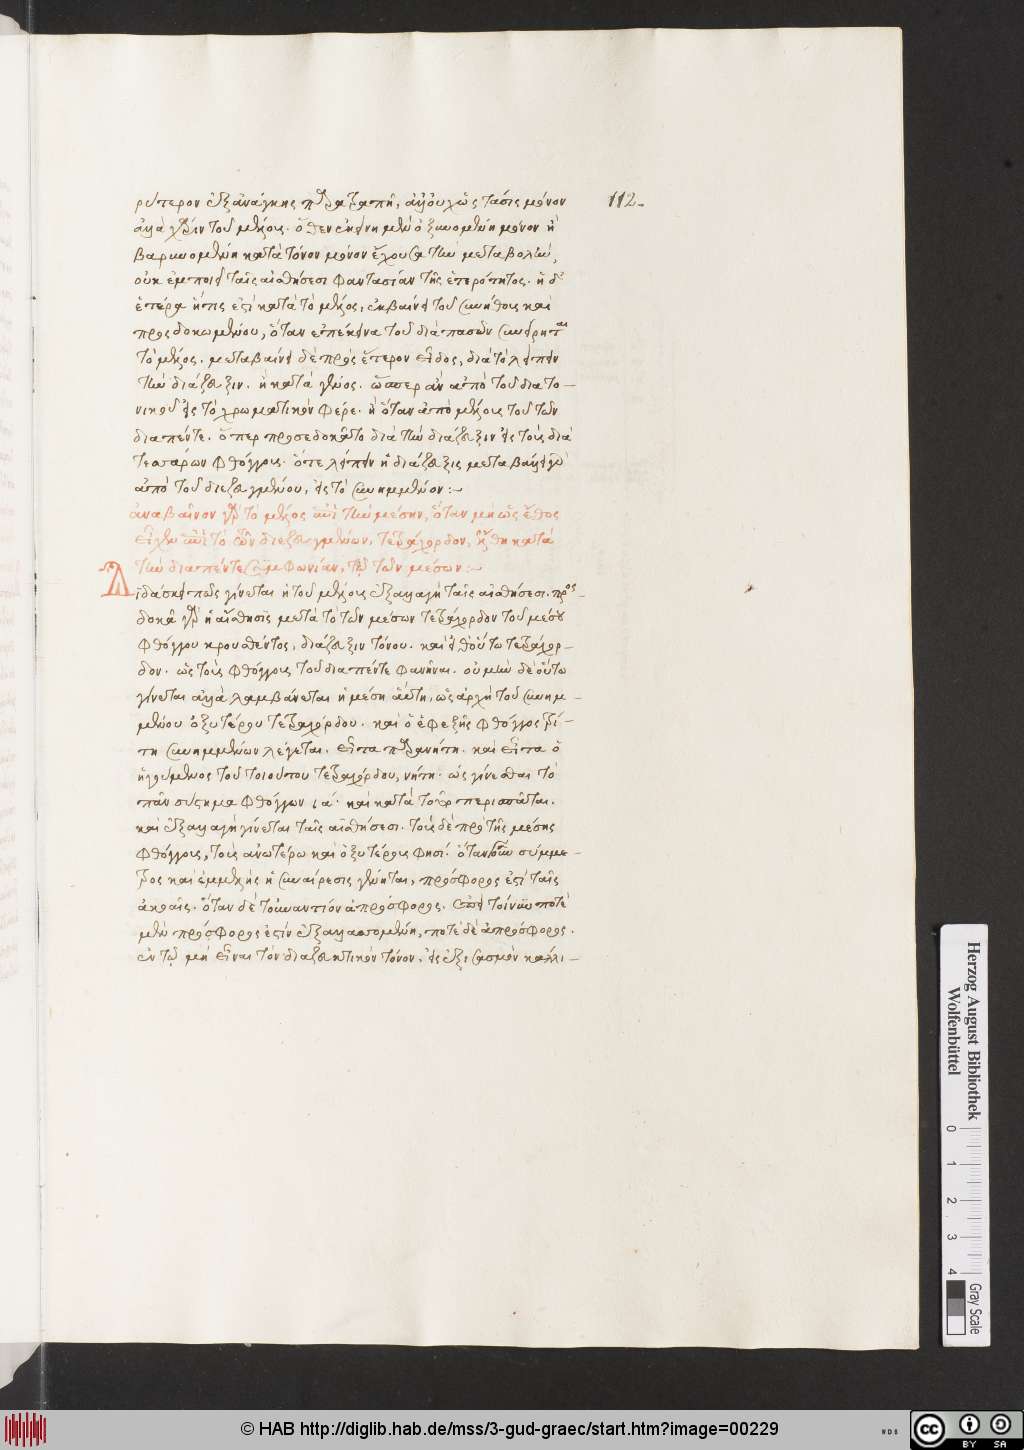 ρύτερον ἐξανάγκης παρατραπῆ, ἀλλ' οὐχ ὡς τάσις μόνον
112.
ἀλλὰ χάριν τοῦ μέλους. ὅθεν ἐκείνη μὲν ὀξυνομένη μόνον ἢ
βαρυνομένη κατὰ τόνον μόνον ἔχουσα τὴν μεταβολὴν,
οὐκ ἐμποιεῖ ταῖς αἰσθήσεσι φαντασίαν τῆς ἑτερότητος. ἡ δ'
ἑτέρα ἥτις ἐστὶ κατὰ τὸ μέλος, ἐκβαίνει τοῦ συνήθους καὶ
προσδοκωμένου, ὅταν ἐπέκεινα τοῦ διαπασῶν συνείρηται
τὸ μέλος. μεταβαίνει δὲ πρὸς ἕτερον εἶδος, διὰ τὸ λιπεῖν
τὴν διάζευξιν. ἢ κατὰ γένος. ὥσπερ ἂν ἀπὸ τοῦ διατο-
νικοῦ εἰς τὸ χρωματικὸν φέρε. ἢ ὅταν ἀπὸ μέλους τοῦ τῶν
διαπέντε. ὅπερ προσεδοκᾶτο διὰ τὴν διάζευξιν εἰς τοὺς διὰ
τεσσάρων φθόγγους. ὅτε λιπεῖν ἡ διάζευξις μεταβαλεῖν
ἀπὸ τοῦ διεζευγμένου, εἰς τὸ συνημμένον:~
ἀναβαῖνον γὰρ τὸ μέλος ἐπὶ τὴν μέσην, ὅταν μὴ ὡς ἔθος
εἶχεν ἐπὶ τὸ τῶν διεζευγμένων, τετράχορδον, ἔλθη κατὰ
τὴν διαπέντε συμφωνίαν, τῷ τῶν μέσων:~
Διδάσκει πῶς γίνεται ἡ τοῦ μέλους ἐξαλλαγὴ ταῖς αἰσθήσεσι. προσ-
δοκᾶ γὰρ ἡ αἴσθησις μετὰ τὸ τῶν μέσων τετράχορδον τοῦ μέσου
φθόγγου κρουσθέντος, διάζευξιν τόνου. καὶ εἶθ' οὕτω τετράχορ-
δον. ὡς τοὺς φθόγγους τοῦ διαπέντε φανῆναι. οὐ μὴν δὲ οὕτω
γίνεται ἀλλὰ λαμβάνεται ἡ μέση αὕτη, ὡς ἀρχὴ τοῦ συνημ-
μένου ὀξυτέρου τετραχόρδου. καὶ ὁ ἐφεξῆς φθόγγος τρί-
τη συνημμένων λέγεται. εἶτα παρανήτη. καὶ εἶτα ὁ
ἡγούμενος τοῦ τοιούτου τετραχόρδου, νήτη. ὡς γίνεσθαι τὸ
πᾶν σύστημα φθόγγων ια΄. καὶ κατὰ τοῦτο περισπᾶται.
καὶ ἐξαλλαγὴ γίνεται ταῖς αἰσθήσεσι. τοὺς δὲ πρὸ τῆς μέσης
φθόγγους, τοὺς ἀνωτέρω καὶ ὀξυτέρους φησί. ὅταν οὖν σύμμε-
τρος καὶ ἐμμελὴς ἡ συναίρεσις γένηται, πρόσφορος ἐστὶ ταῖς
ἀκοαῖς. ὅταν δὲ τοὐναντίον ἀπρόσφορος. ἐπεὶ τοίνυν ποτὲ
μὲν πρόσφορος ἐστὶν ἐξαλλασσομένη, ποτὲ δὲ ἀπρόσφορος.
ἐν τῷ μὴ εἶναι τὸν διαζευκτικὸν τόνον, εἰς ἐξισασμὸν καλλι-
Herzog August Bibliothek
Wolfenbüttel
0 1 2 3 4
Gray Scale
© HAB http://diglib.hab.de/mss/3-gud-graec/start.htm?image=00229
cc BY SA